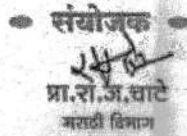 संयोजक
प्रा.रा.ज.चाटे
मराठी विभाग